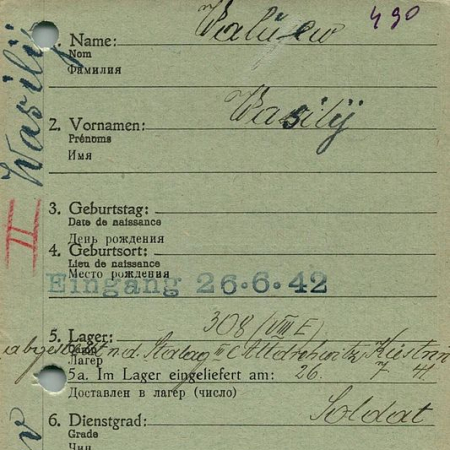 490
1. Name:
Nom
Фамилия
Wasilij
2. Vornamen: Wasilij
Prénoms
Имя
II
3. Geburtstag:
Date de naissance
День рождения
4. Geburtsort:
Lieu de naissance
Место рождения
Eingang 26.6.42
5. Lager: 308 (VIII E)
Camp
Лагер
n. d. Stalag III C Alt Drewitz Küstrin
5a. Im Lager eingeliefert am: 26. 7 41.
Доставлен в лагер (число)
6. Dienstgrad: Soldat
Grade
Чин